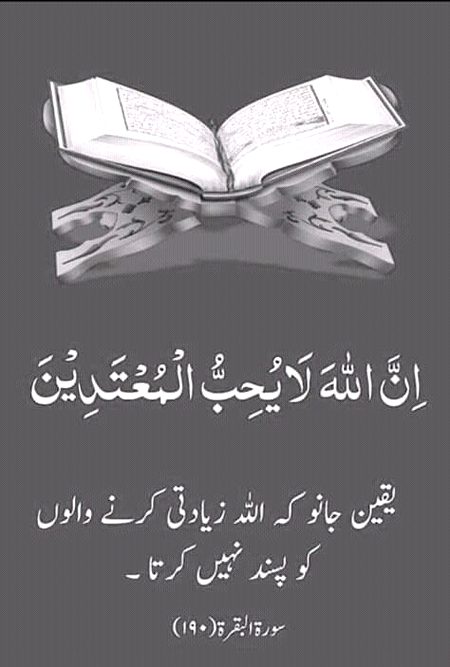 اِنَّ اللّٰهَ لَا يُحِبُّ الْمُعْتَدِيْنَ
یقین جانو کہ اللہ زیادتی کرنے والوں
کو پسند نہیں کرتا ۔
سورۃ البقرۃ (۱۹۰)